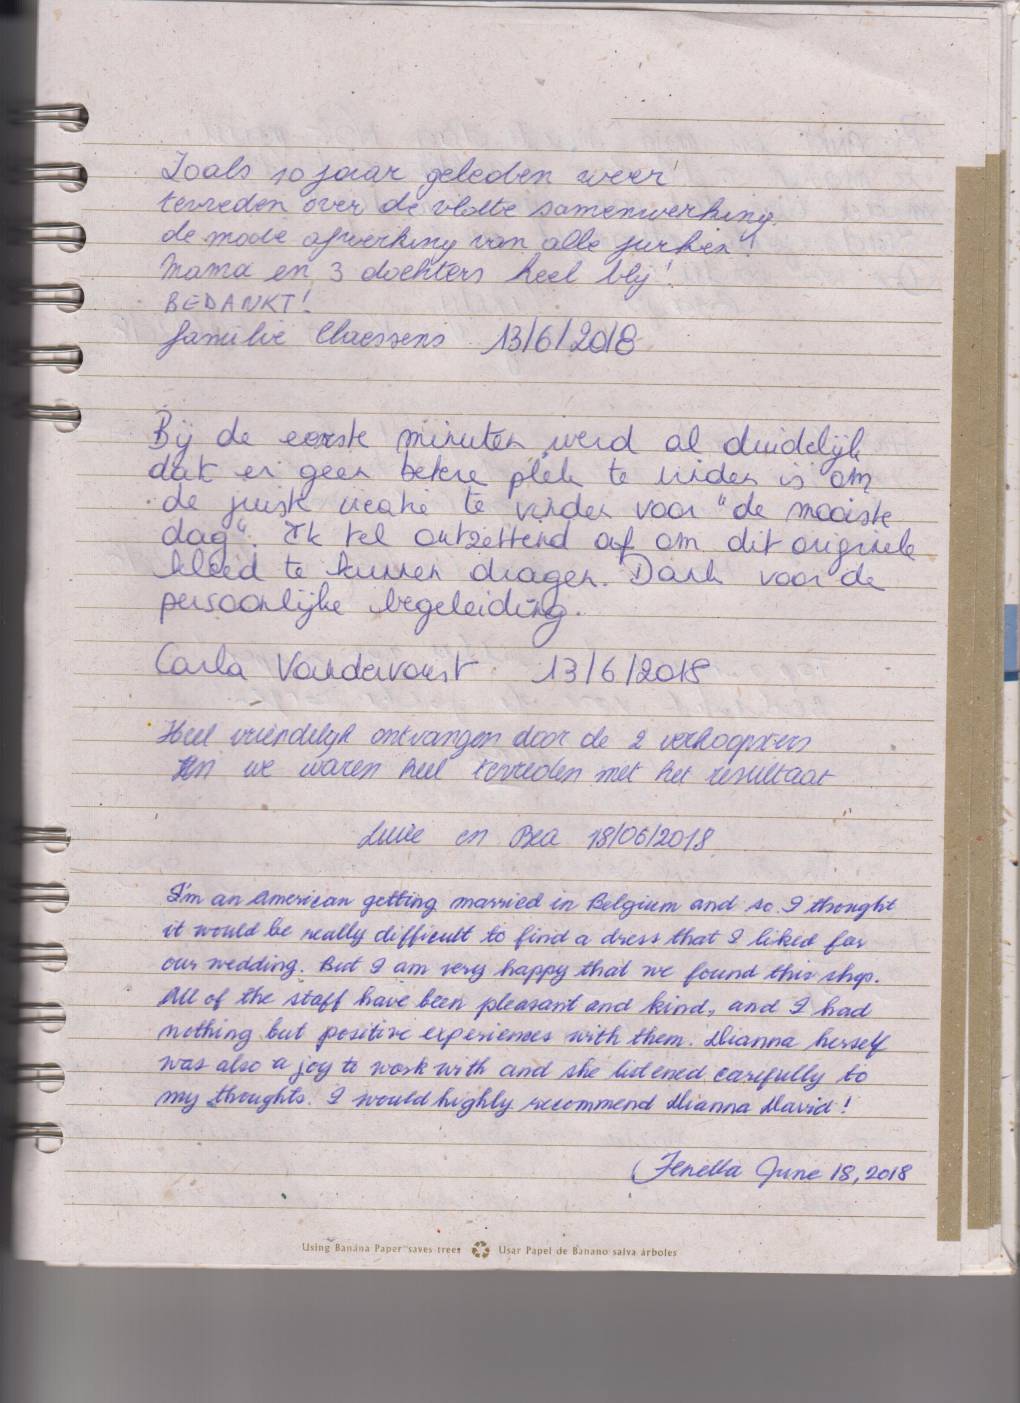 Zoals 10 jaar geleden weer
tevreden over de vlotte samenwerking,
de mooie afwerking van alle jurken!
Mama en 3 dochters heel blij!
BEDANKT!
familie Claessens 13/6/2018
Bij de eerste minuten werd al duidelijk
dat er geen betere plek te vinden is om
de juiste creatie te vinden voor "de mooiste
dag". Ik tel ontzettend af om dit originele
kleed te kunnen dragen. Dank voor de
persoonlijke begeleiding.
Carla Vandervorst 13/6/2018
Heel vriendelijk ontvangen door de 2 verkoopsters
en we waren heel tevreden met het resultaat
en Bea 18/06/2018
I'm an American getting married in Belgium and so I thought
it would be really difficult to find a dress that I liked for
our wedding. But I am very happy that we found this shop.
All of the staff have been pleasant and kind, and I had
nothing but positive experiences with them. Dianna herself
was also a joy to work with and she listened carefully to
my thoughts. I would highly recommend Dianna David!
Fenella June 18, 2018
Using Banana Paper saves trees Usar Papel de Banano salva árboles